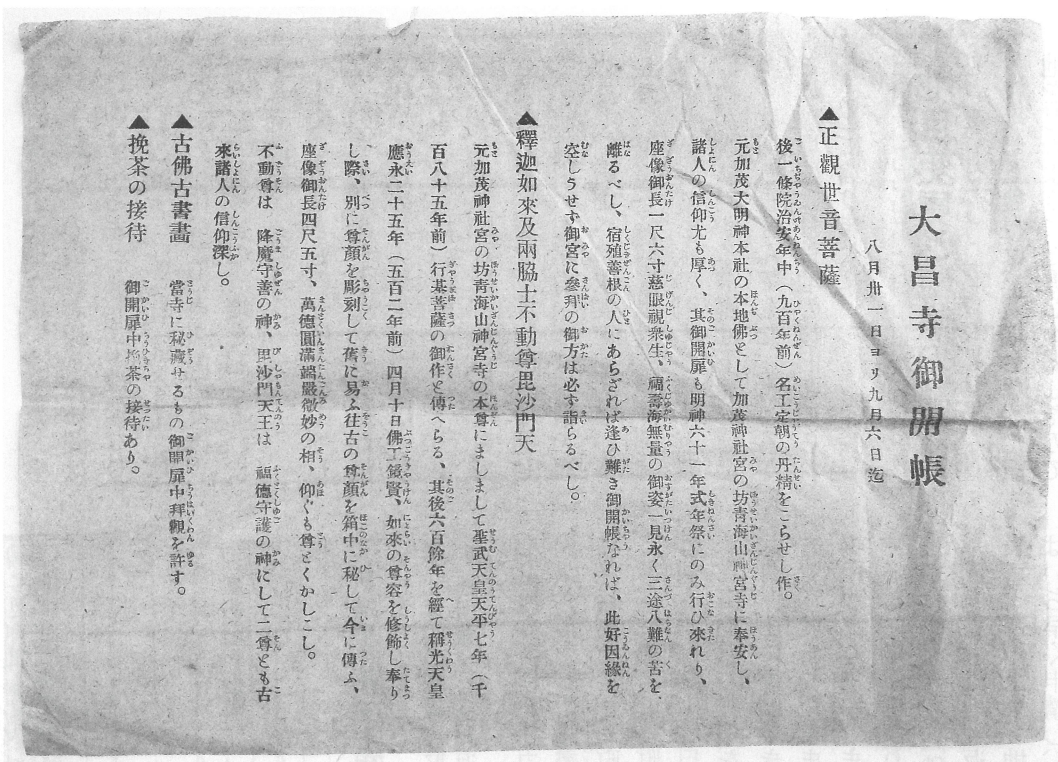 大昌寺御開帳
八月卅一日ヨリ九月六日迄
▲正觀世音菩薩
後一條院治安年中（九百年前）名工定朝の丹精をこらせし作。
元加茂大明神本社の本地佛として加茂神社宮の坊靑海山神宮寺に奉安し、
諸人の信仰尤も厚く、其御開扉も明神六十一年式年祭にのみ行ひ來れり、
座像御長一尺六寸慈眼視衆生、福壽海無量の御姿一見永く三途八難の苦を
離るべし、宿殖善根の人にあらざれば逢ひ難き御開帳なれば、此好因緣を
空しうせず御宮に參拜の御方は必ず詣らるべし。
▲釋迦如來及兩脇士不動尊毘沙門天
元加茂神社宮の坊靑海山神宮寺の本尊にましまして聖武天皇天平七年（千
百八十五年前）行基菩薩の御作と傳へらる、其後六百餘年を經て稱光天皇
應永二十五年（五百二年前）四月十日佛工鏡賢、如來の尊容を修飾し奉り
し際、別に尊顏を彫刻して舊に易ふ往古の尊顏を箱中に秘して今に傳ふ、
座像御長四尺五寸、萬德圓滿端嚴微妙の相、仰ぐも尊とくかしこし。
不動尊は　降魔守善の神、毘沙門天王は　福德守護の神にして二尊とも古
來諸人の信仰深し。
▲古佛古書畫　當寺に秘藏せるもの御開扉中拜觀を許す。
▲挽茶の接待　御開扉中挽茶の接待あり。